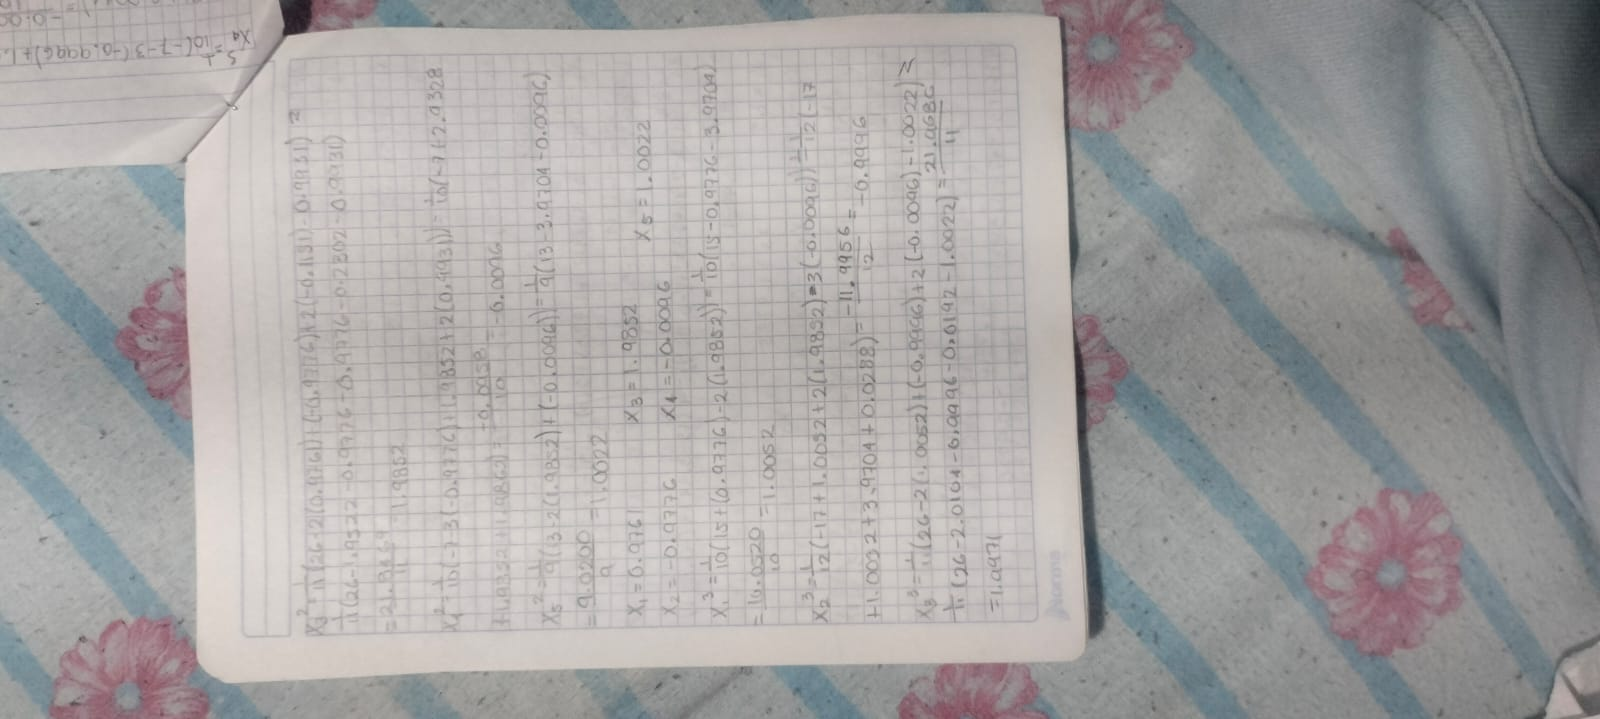 x₃² = 1/11(26-2(0.9761)+(-0.9776)+2(-0.1151)-0.9931) =
1/11(26-1.9522-0.9776-0.9776-0.2302-0.9931)
= 21.8369/11 = 1.9852
x₄² = 1/10(-7-3(-0.9776)+1.9852+2(0.9931)) = 1/10(-7+2.9328
+1.9852+1.9862) = -0.0958/10 = -0.0096
x₅² = 1/9(13-2(1.9852)+(-0.0096)) = 1/9(13-3.9704-0.0096)
= 9.0200/9 = 1.0022
x₁ = 0.9761 x₃ = 1.9852 x₅ = 1.0022
x₂ = -0.9776 x₄ = -0.0096
x₁³ = 1/10(15+(0.9776)-2(1.9852)) = 1/10(15-0.9776-3.9704)
= 10.0520/10 = 1.0052
x₂³ = 1/12(-17+1.0052+2(1.9852)-3(-0.0096)) = 1/12(-17
+1.0052+3.9704+0.0288) = -11.9956/12 = -0.9996
x₃³ = 1/11(26-2(1.0052)+(-0.9996)+2(-0.0096)-1.0022) =
1/11(26-2.0104-0.9996-0.0192-1.0022) = 21.9686/11
= 1.9971
Norma
x₄⁵ = 1/10(-7-3(-0.9996)+1.